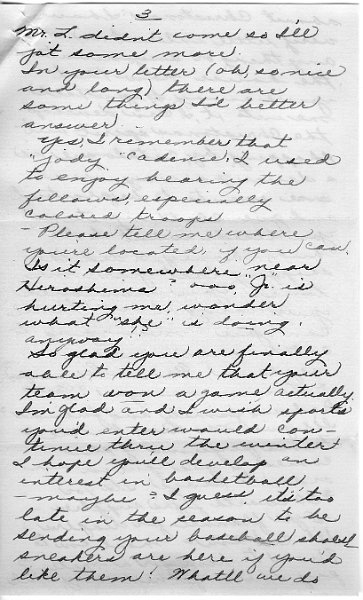 3
Mr. L. didn't come so I'll
jot some more.
In your letter (oh, so nice
and long) there are
some things I'd better
answer.
Yes, I remember that
"Jody" cadence. I used
to enjoy hearing the
fellows, especially
colored troops.
- Please tell me where
you're located, if you can.
Is it somewhere "near
Hiroshima" - ooo, Jr. is
hurting me, wonder
what "she" is doing,
anyway!
So glad you are finally
able to tell me that your
team won a game actually.
I'm glad and I wish sports
you'd enter would con-
tinue thru the winter
I hope you'll develop an
interest in basketball
- maybe? I guess it's too
late in the season to be
sending your baseball shoes!
sneakers are here if you'd
like them! What'll we do